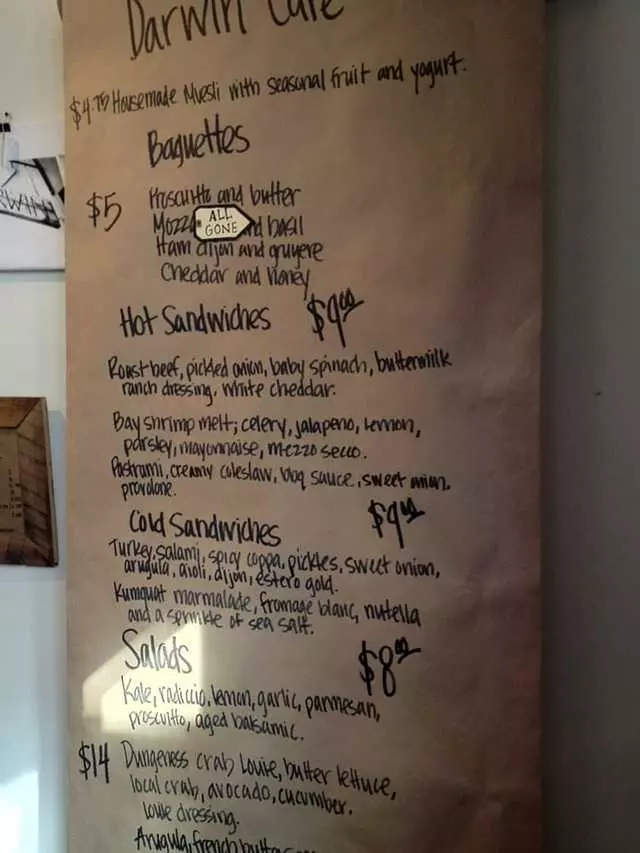 Darwin Cafe
$4.75 Housemade Muesli with seasonal fruit and yogurt.
Baguettes
$5 Prosciutto and butter
Mozza ALL GONE nd basil
Ham dijon and gruyere
Cheddar and honey
Hot Sandwiches $9.00
Roast beef, pickled onion, baby spinach, buttermilk
ranch dressing, white cheddar.
Bay shrimp melt; celery, jalapeno, lemon,
parsley, mayonnaise, mezzo secco.
Pastrami, creamy coleslaw, bbq sauce, sweet onion,
provolone.
Cold Sandwiches $9.00
Turkey, salami, spicy coppa, pickles, sweet onion,
arugula, aioli, dijon, estero gold.
Kumquat marmalade, fromage blanc, nutella
and a sprinkle of sea salt.
Salads $8.00
Kale, radiccio, lemon, garlic, parmesan,
proscuitto, aged balsamic.
$14 Dungeness crab Louie, butter lettuce,
local crab, avocado, cucumber,
louie dressing.
Arugula, french butter